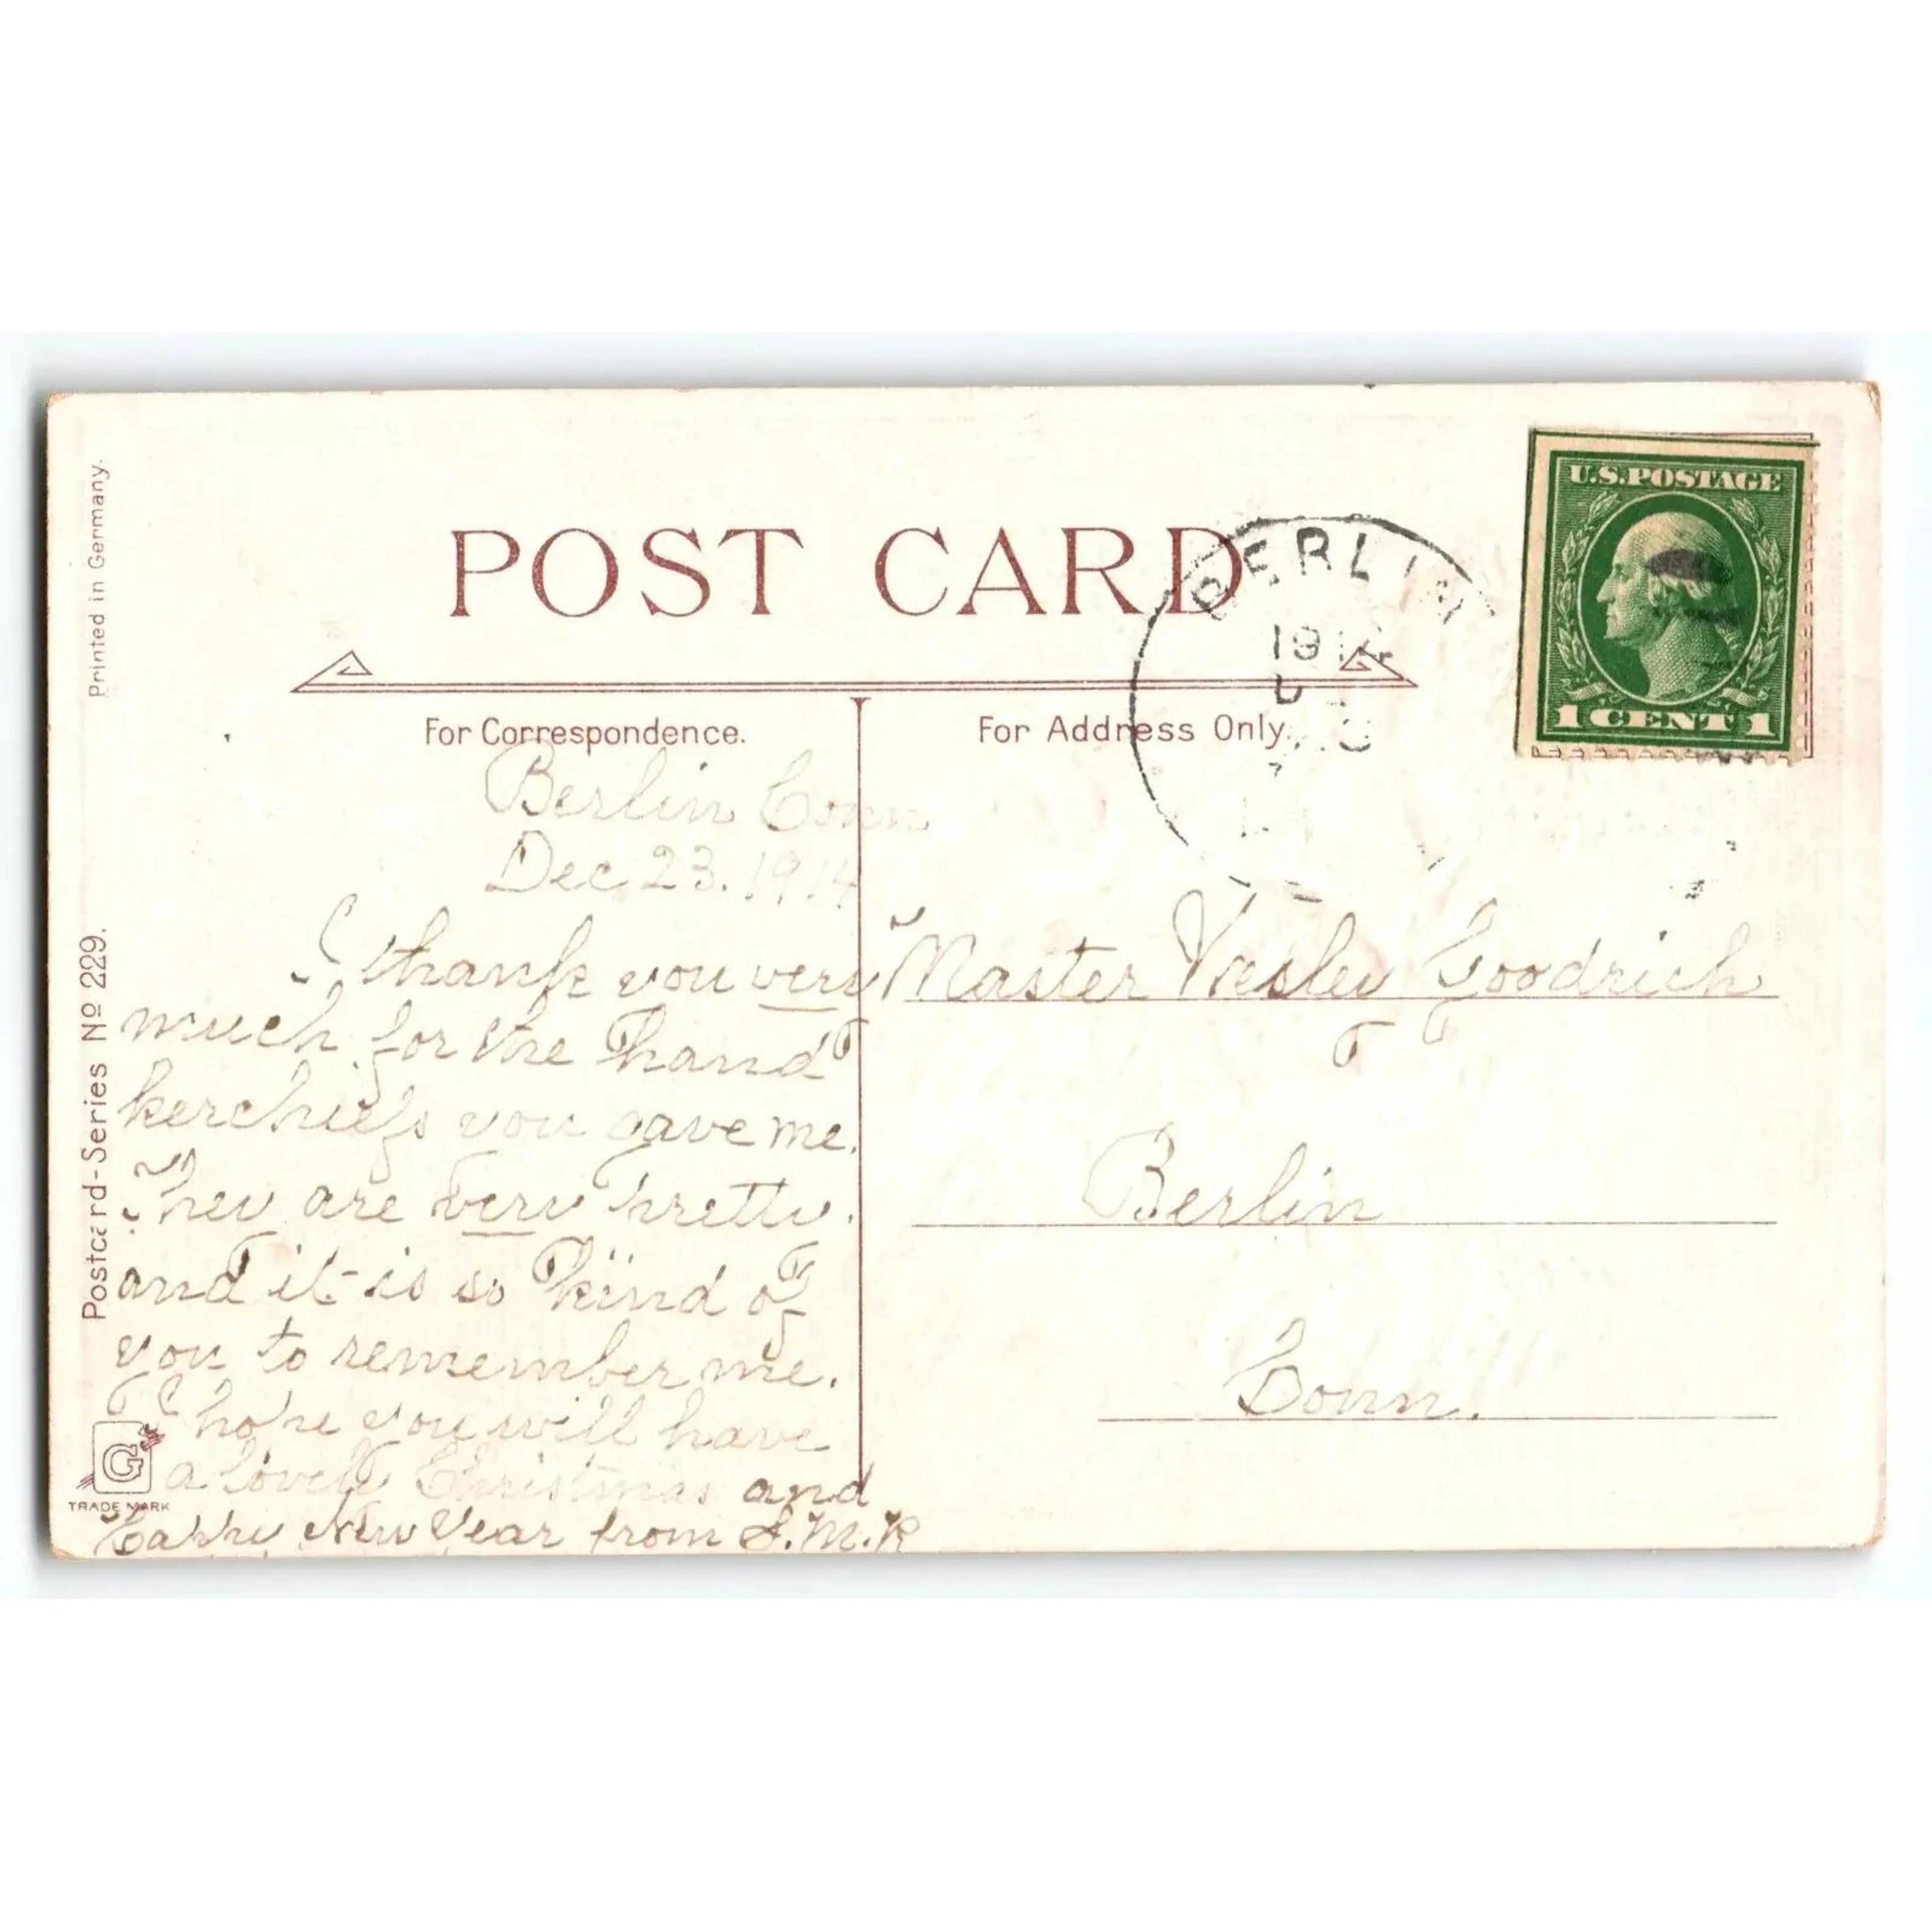 POST CARD
BERLIN
1914
U.S. POSTAGE
1 CENT 1
Printed in Germany.
Postcard-Series No 229.
G
TRADE MARK
For Correspondence.
Berlin Conn
Dec 23. 1914
I thank you very
much for the hand
kerchiefs you gave me.
They are very pretty.
and it is so kind of
you to remember me.
I hope you will have
a lovely Christmas and
Happy New Year from S.M.R
For Address Only.
Master Wesley Goodrich
Berlin
Conn.